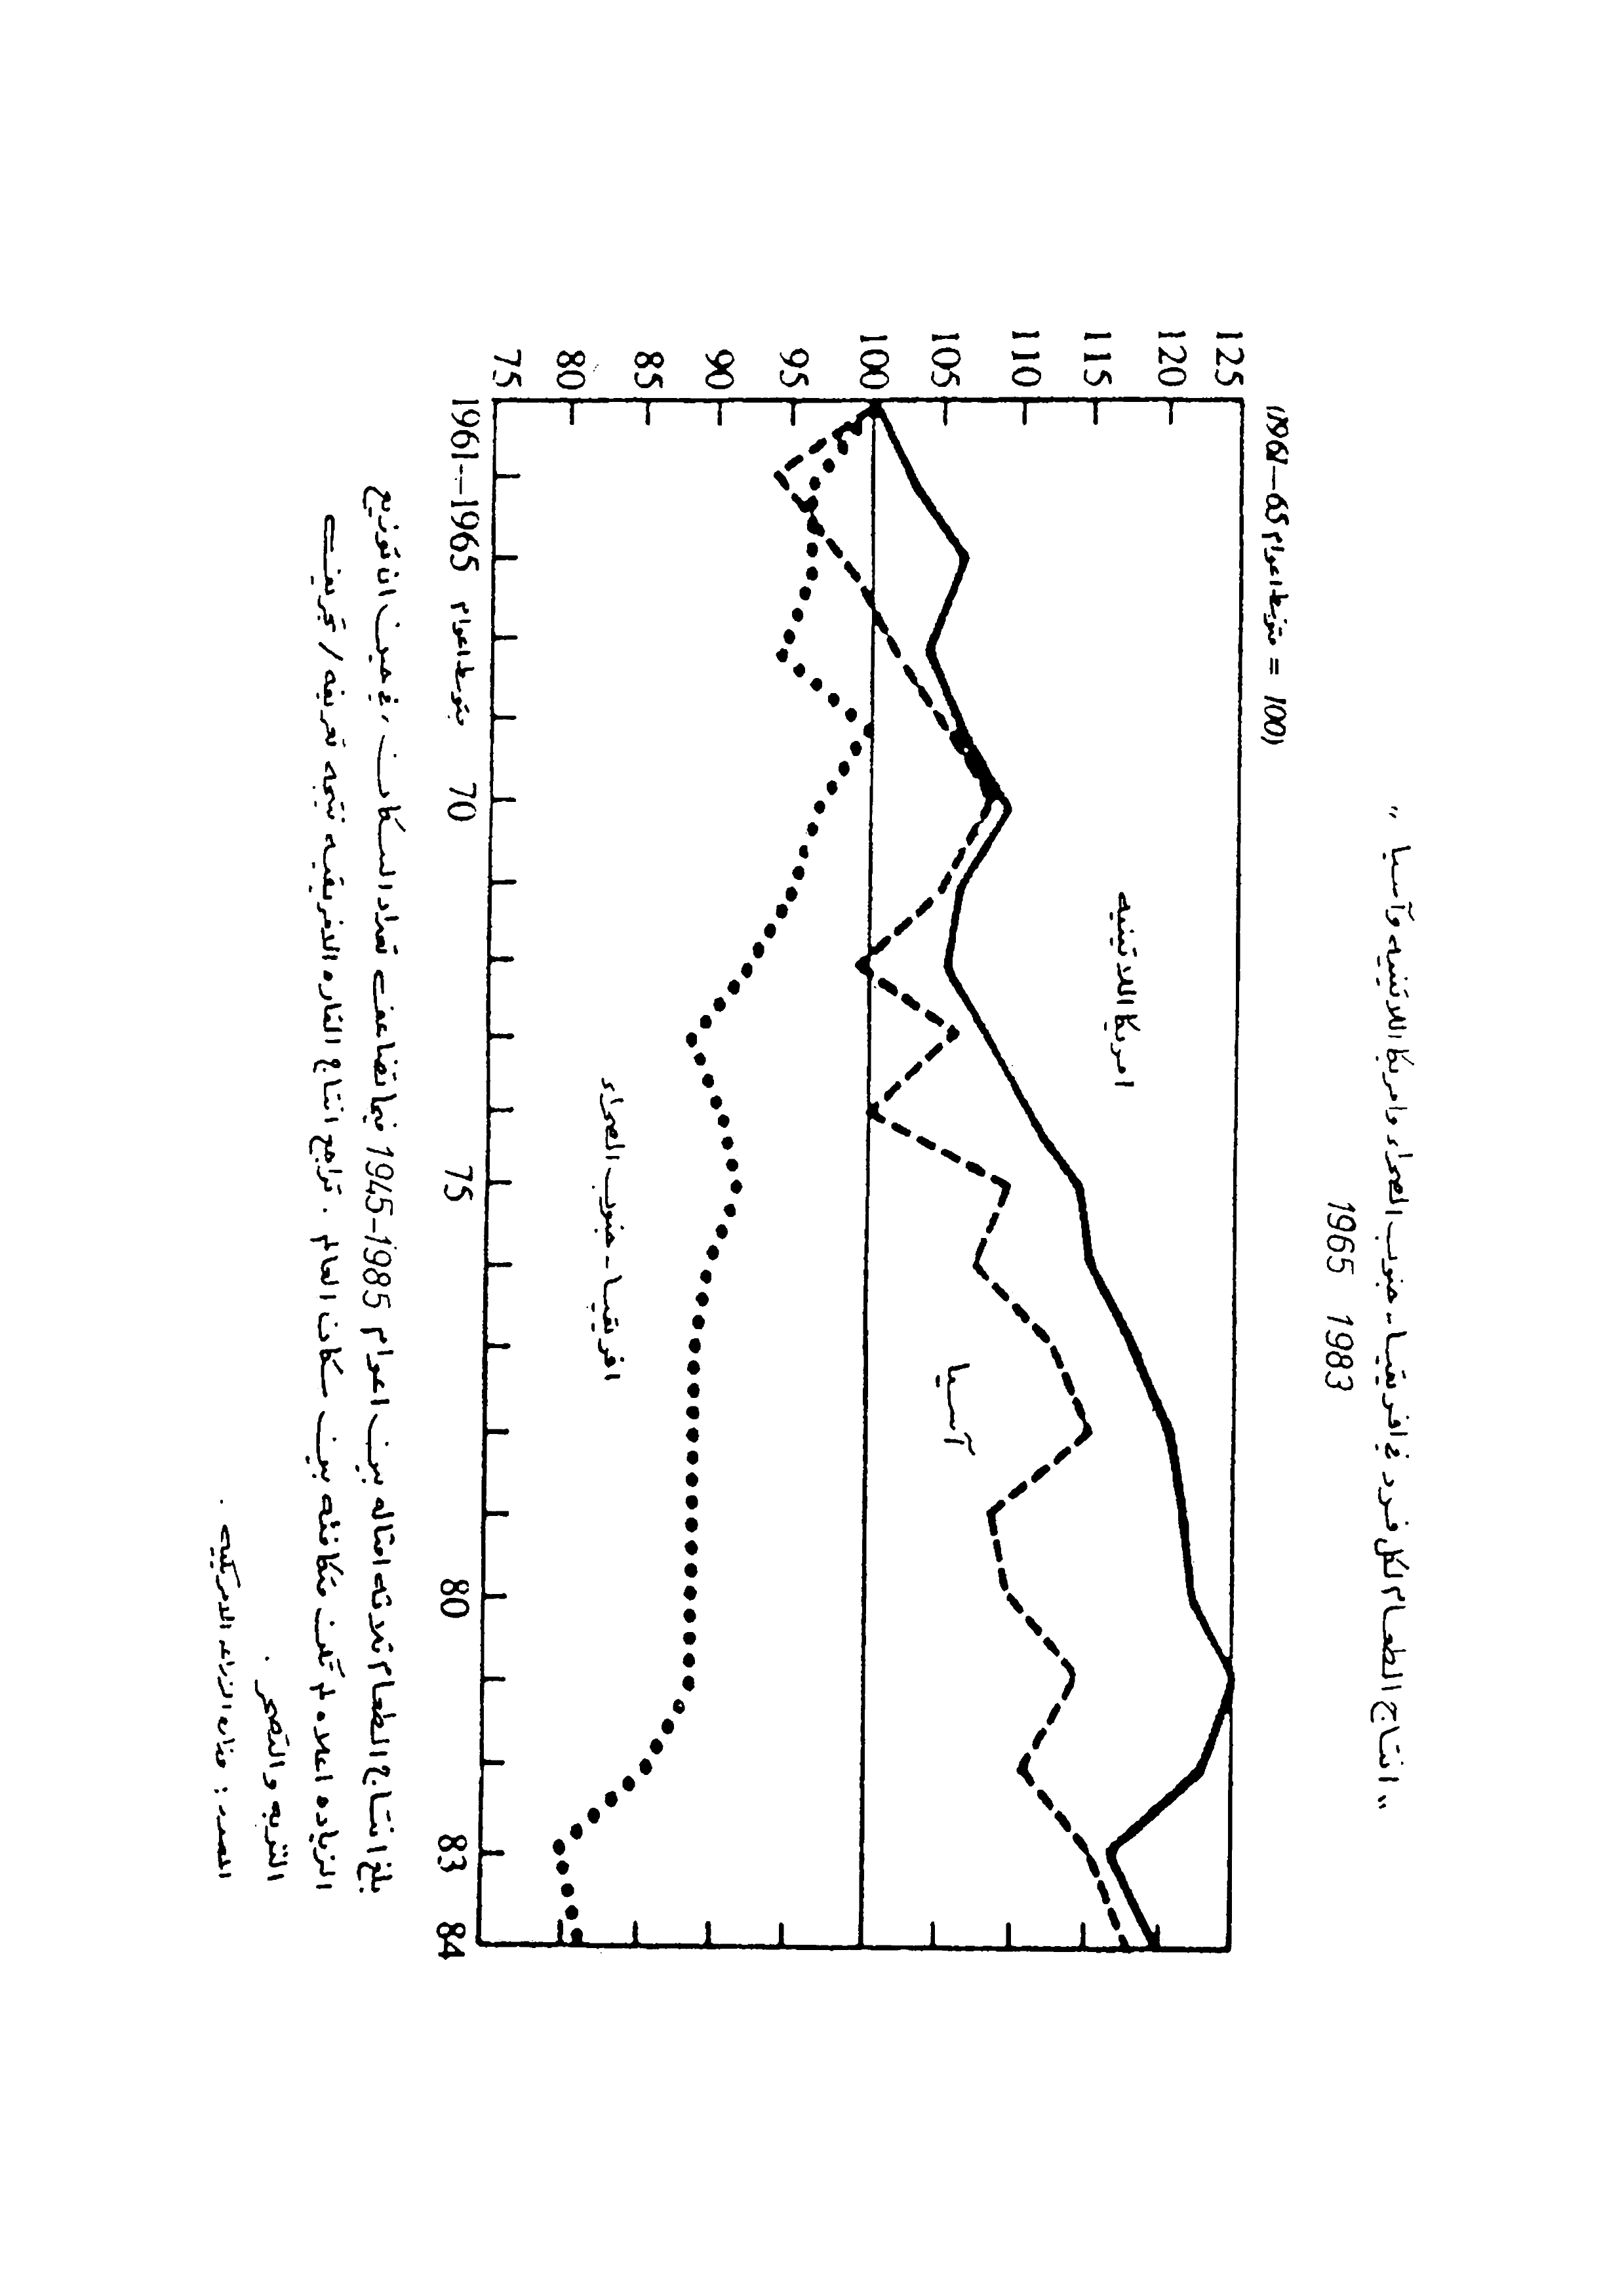 „ انتاج الطعام لكل فرد في افريقيا - جنوب الصحراء وامريكا اللاتينيه وآسيا "
1965 1983
(متوسط اعوام 1961–65 = 100)
125
120
115
110
105
100
95
90
85
80
75
امريكا اللاتينيه
آسيا
افريقيا - جنوب الصحراء
1961–1965 متوسط اعوام 70 75 80 83 84
بلغ انتاج الطعام ثلاثه امثاله بين اعوام 1985-1945 فيما تضاعف تعداد السكان ، في حين ان توزيع
الزياده اعلاه لم تكن متكافئه بين سكان العالم . تراجع انتاج القاره الافريقيه نتيجه تعريفه / تجريف
التربه والتصحر .
المصدر : وزاره الزراعه الامريكيه .